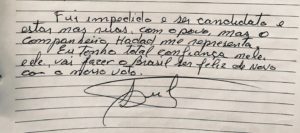 Fui impedido e ser candidato e
estar nas ruas, com o povo, mas o
companheiro Hadad me representa,
Eu Tenho total confiança nele,
ele, vai fazer o Brasil ser feliz de novo
com o nosso voto.